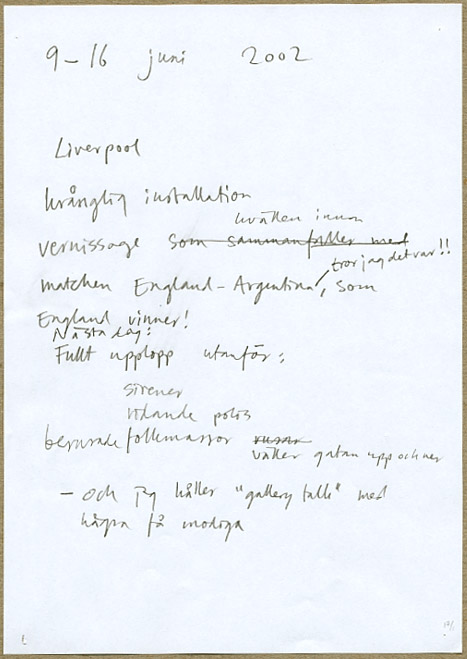 9–16 juni 2002
Liverpool
krånglig installation
kvällen innan
vernissage som sammanfaller med
tror jag det var!!
matchen England–Argentina, som
England vinner!
Nästa dag:
Fullt upplopp utanför:
sirener
ridande polis
berusade folkmassor rusar
väller gatan upp och ner
– och jag håller "gallery talk" med
några få modiga